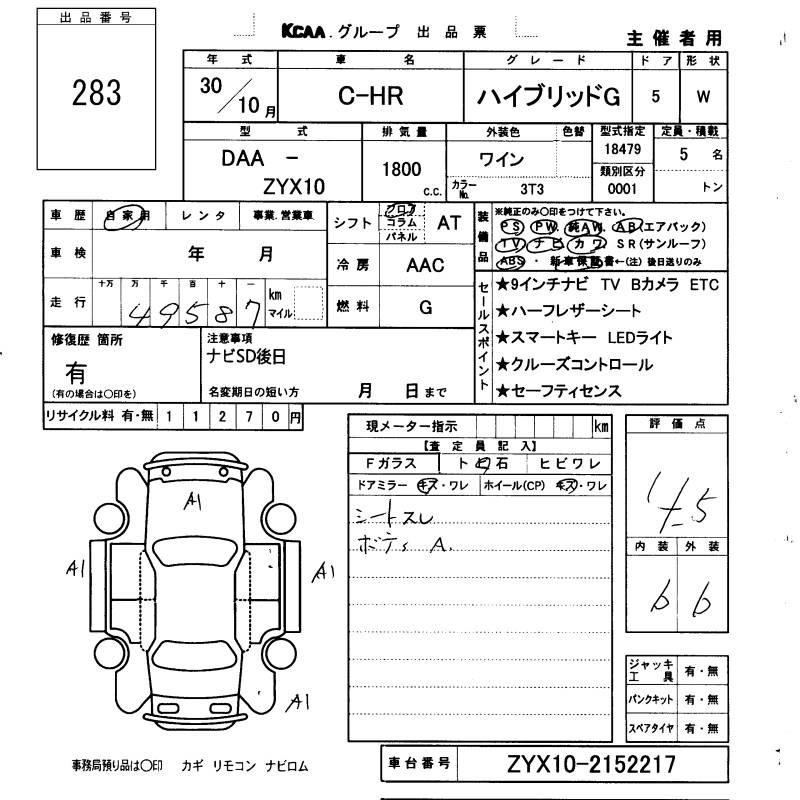 出品番号
283
KCAA.グループ 出品票
主催者用
年式 車名 グレード ドア 形状
30/10月 C-HR ハイブリッドG 5 W
型式 排気量 外装色 色替 型式指定 定員・積載
DAA - 1800 c.c. ワイン 18479 5名
ZYX10 カラーNo. 3T3 類別区分 0001 トン
車歴 自家用 レンタ 事業.営業車
車検 年 月
走行 十万 万 千 百 十 一 km マイル
49587
シフト フロア コラム パネル AT
冷房 AAC
燃料 G
装備品
※純正のみ○印をつけて下さい。
PS PW 純AW AB(エアバック)
TV ナビ カワ SR(サンルーフ)
ABS ・ 新車保証書←(注)後日送りのみ
セールスポイント
★9インチナビ TV Bカメラ ETC
★ハーフレザーシート
★スマートキー LEDライト
★クルーズコントロール
★セーフティセンス
修復歴 箇所
有
(有の場合は○印を)
注意事項
ナビSD後日
名変期日の短い方 月 日まで
リサイクル料 有・無 11270円
現メーター指示 km
【査定員記入】
Fガラス ト 石 ヒビワレ
ドアミラー キズ・ワレ ホイール(CP) キズ・ワレ
シートスレ
ボディ A.
評価点
4.5
内装 外装
b b
A1
A1
A1
A1
ジャッキ工具 有・無
パンクキット 有・無
スペアタイヤ 有・無
事務局預り品は○印 カギ リモコン ナビロム
車台番号 ZYX10-2152217